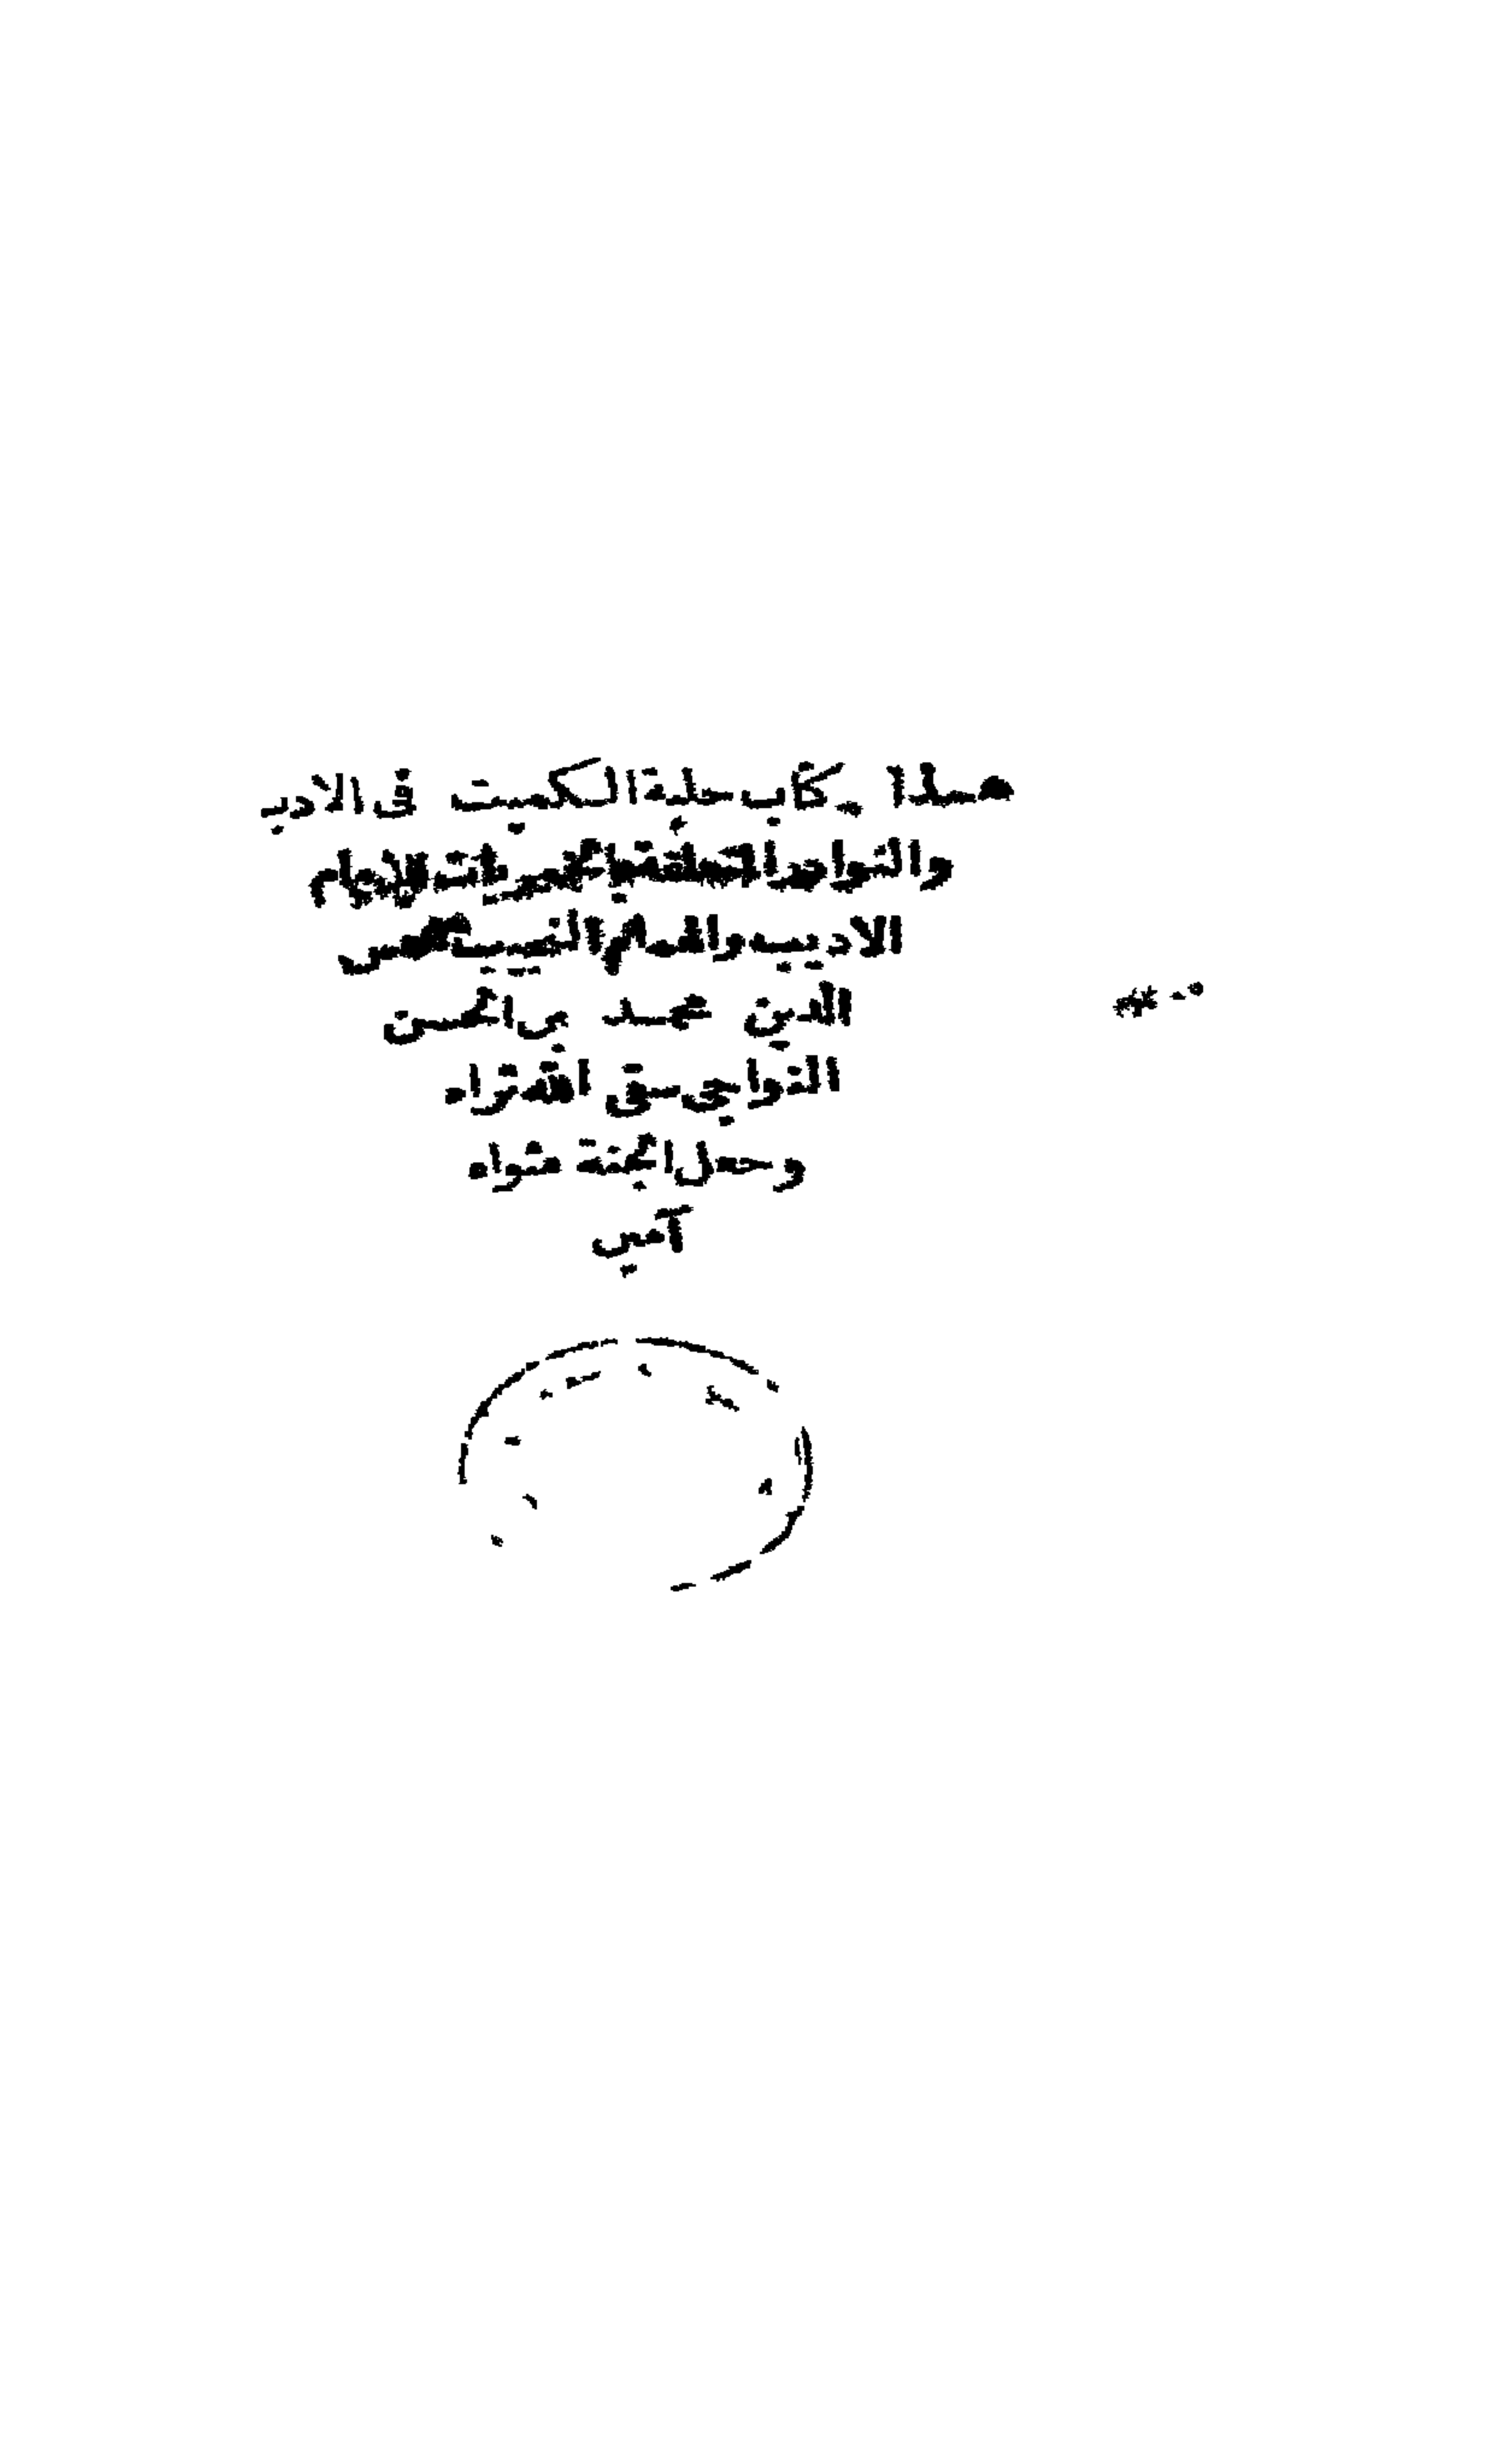 هذا كتاب حلبة الكميت فى الادب
والنوادر المتعلقة بالخمريات للامام
الاديب والهمام النسيب شمس
الدين محمد بن الحسن
النواجى سقى الله ثراه
وجعل الجنة مثواه
آمين